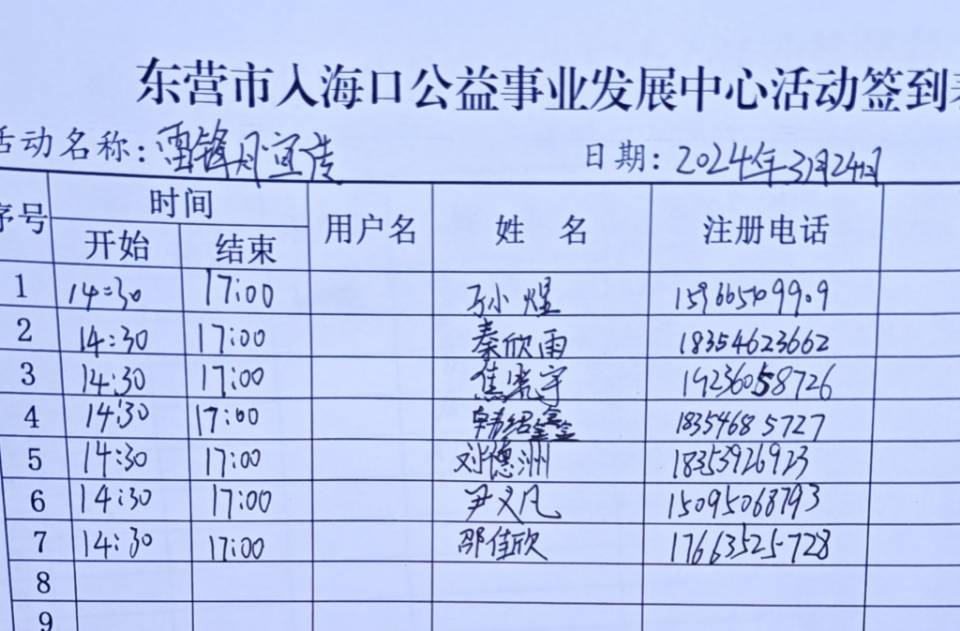 东营市入海口公益事业发展中心活动签到
活动名称：雷锋月宣传 日期：2024年3月24日
序号 时间 用户名 姓 名 注册电话
开始 结束
1 14:30 17:00 孙小煜
2 14:30 17:00 秦欣雨 18354623662
3 14:30 17:00
4 14:30 17:00 韩绍鑫 18354685727
5 14:30 17:00 刘德洲
6 14:30 17:00 尹义凡 15095068793
7 14:30 17:00 邵佳欣 17663525728
8
9